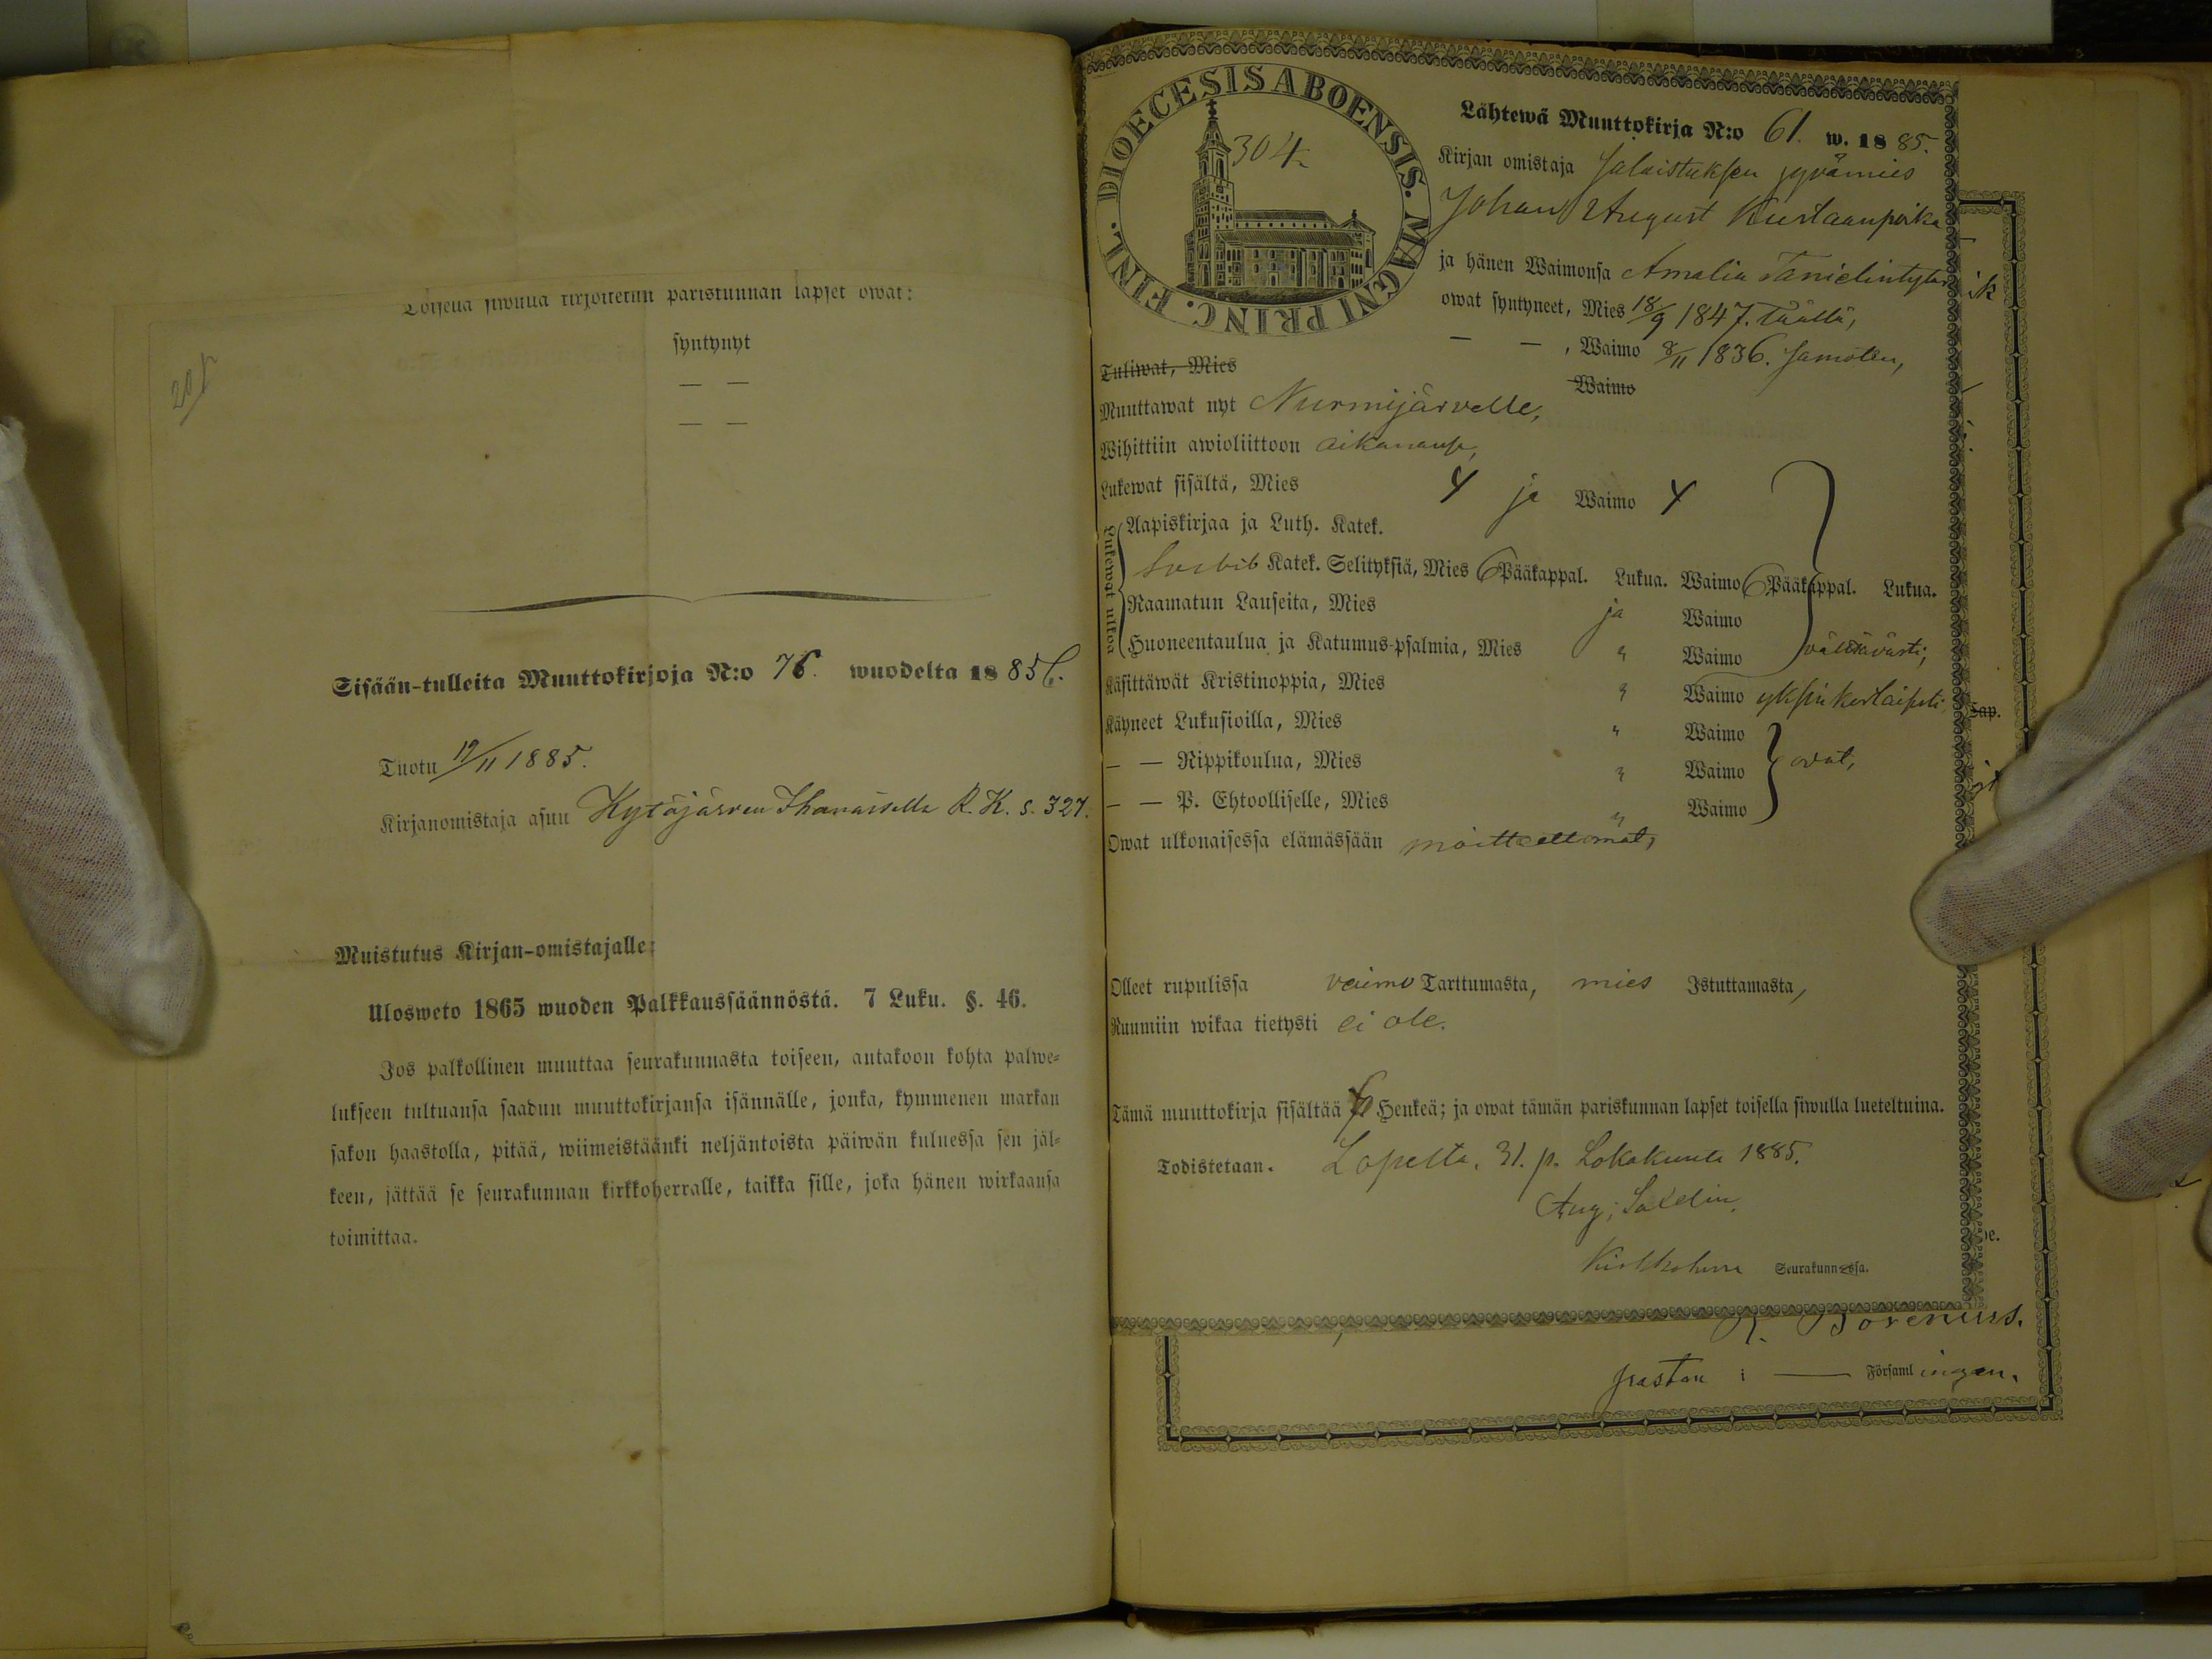 Toisella siwulla kirjoitetun pariskunnan lapset owat:
syntynyt
— —
— —
Sisään-tulleita Muuttokirjoja N:o 76. wuodelta 1885.
Tuotu 12/11 1885.
Kirjanomistaja asuu Kytäjärven R. K. s. 327.
Muistutus Kirjan-omistajalle:
Ulosweto 1865 wuoden Palkkaussäännöstä. 7 Luku. §. 46.
Jos palkollinen muuttaa seurakunnasta toiseen, antakoon kohta palwe-
lukseen tultuansa saadun muuttokirjansa isännälle, jonka, kymmenen markan
sakon haastolla, pitää, wiimeistäänki neljäntoista päiwän kuluessa sen jäl-
keen, jättää se seurakunnan kirkkoherralle, taikka sille, joka hänen wirkaansa
toimittaa.
DIOECESIS ABOENSIS. MAGNI PRINC. FINL.
304
Lähtewä Muuttokirja N:o 61. w. 1885.
Kirjan omistaja
Johan August Kustaanpoika
ja hänen Waimonsa Amalia Tanielintytär
owat syntyneet, Mies 18/9 1847. täällä,
— — , Waimo 8/11 1836. samoten,
Tuliwat, Mies Waimo
Muuttawat nyt Nurmijärvelle,
Wihittiin awioliittoon aikanansa,
Lukewat sisältä, Mies 4 ja Waimo 4
Lukewat ulkoa
Aapiskirjaa ja Luth. Katek.
Svebib Katek. Selityksiä, Mies 6 Pääkappal. Lukua. Waimo 6 Pääkappal. Lukua.
Raamatun Lauseita, Mies ja Waimo
Huoneentaulua ja Katumus-psalmia, Mies " Waimo välttävästi,
Käsittäwät Kristinoppia, Mies " Waimo yksinkertaisesti
Käyneet Lukusioilla, Mies " Waimo
— — Rippikoulua, Mies " Waimo ovat,
— — P. Ehtoolliselle, Mies " Waimo
Owat ulkonaisessa elämässään moitteettomat,
Olleet rupulissa vaimo Tarttumasta, mies Istuttamasta,
Ruumiin wikaa tietysti ei ole.
Tämä muuttokirja sisältää Henkeä; ja owat tämän pariskunnan lapset toisella siwulla lueteltuina.
Todistetaan. Lopelta, 31. p. Lokakuuta 1885.
Aug:
Kirkkoherra Seurakunnassa.
Borenius.
i — Församlingen.